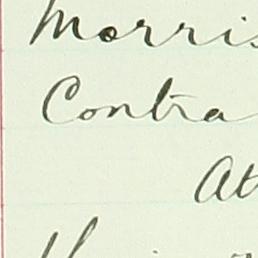 Morris
Contra
At